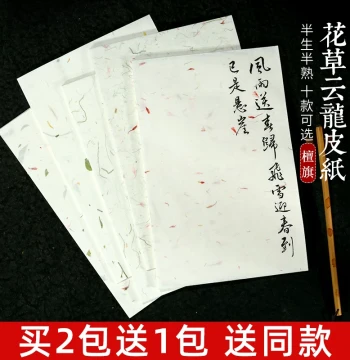 花草云龍皮紙
半生半熟 十款可选 檀旗
風雨送春歸飛雪迎春到
已是懸崖
买2包送1包 送同款